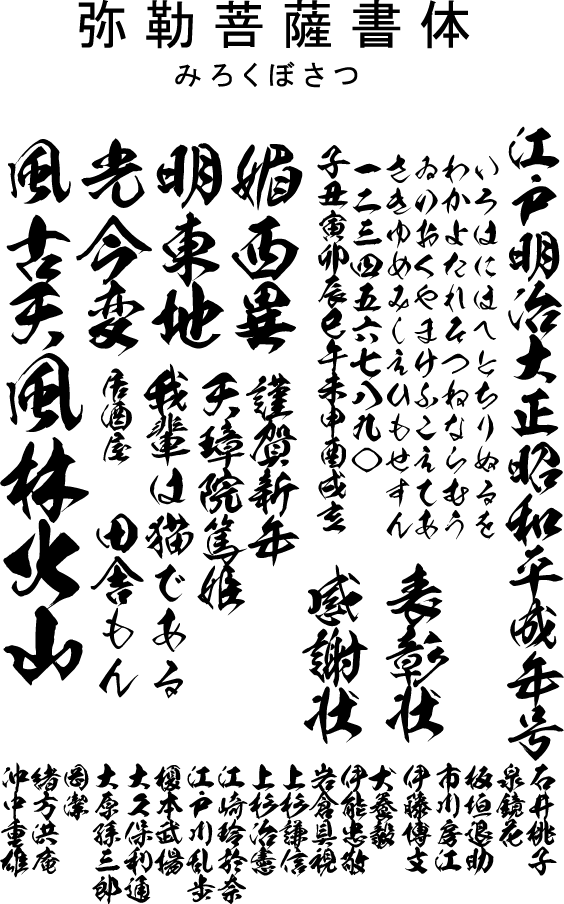 弥勒菩薩書体
みろくぼさつ
江戸明治大正昭和平成年号
いろはにほへとちりぬるを
わかよたれそつねならむう
ゐのおくやまけふこえてあ
さきゆめみしゑひもせすん
一二三四五六七八九〇
子丑寅卯辰巳午未申酉戌亥
風光明媚
古今東西
天変地異
表彰状
感謝状
謹賀新年
天璋院篤姫
我輩は猫である
居酒屋
田舎もん
風林火山
石井桃子
泉鏡花
板垣退助
市川房江
伊藤博文
犬養毅
伊能忠敬
岩倉具視
上杉謙信
上杉治憲
江崎玲於奈
江戸川乱歩
榎本武揚
大久保利通
大原孫三郎
岡潔
緒方洪庵
沖中重雄